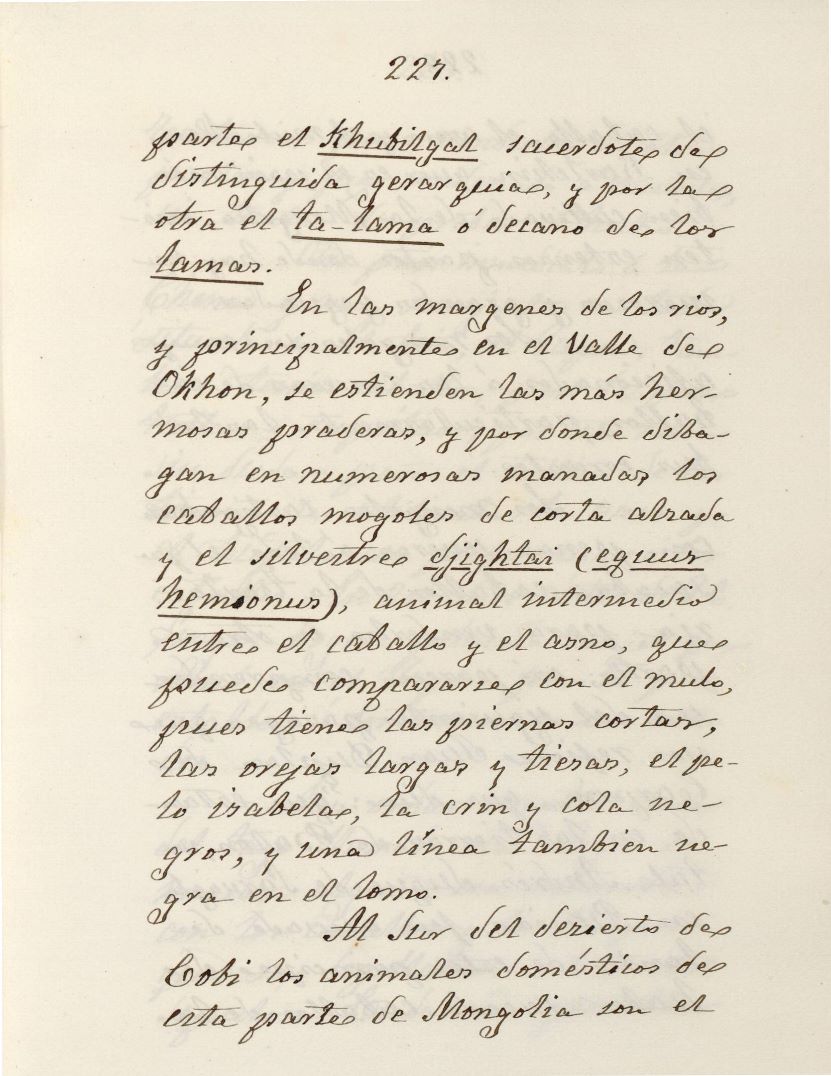 227.
parte el Khubilgal sacerdote de
distinguida gerarquia, y por la
otra el ta-lama ó decano de los
lamas.
En las margenes de los rios,
y principalmente en el Valle de
Okhon, se estienden las más her-
mosas praderas, y por donde diba-
gan en numerosas manadas los
caballos mogoles de corta alzada
y el silvestre djightai (equus
hemionus), animal intermedio
entre el caballo y el asno, que
puede compararse con el mulo,
pues tiene las piernas cortas,
las orejas largas y tiesas, el pe-
lo izabela, la crin y cola ne-
gros, y una línea tambien ne-
gra en el lomo.
Al Sur del desierto de
Cobi los animales domésticos de
esta parte de Mongolia son el